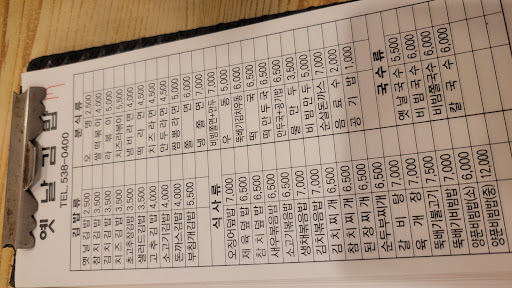 옛날김밥
TEL.538-0400
김밥류
옛날김밥 2,500
참치김밥 3,500
김치김밥 3,500
치즈김밥 3,500
초고추장김밥 3,500
샐러드김밥 3,500
고추김밥 4,000
소고기김밥 4,000
돈까스김밥 4,500
부침개김밥 5,500
분식류
오뎅 2,500
쌀떡볶이 4,000
라볶이 5,000
치즈라볶이 5,500
라면 3,500
냄비라면 4,000
떡라면 4,500
치즈라면 4,500
만두라면 4,500
짬뽕라면 5,000
쫄면 6,000
냉쫄면 7,000
비빔쫄면+만두 7,000
우동 5,000
뚝배기김치우동 6,000
떡국 6,500
떡만두국 6,500
만두국+공기밥 6,500
물만두 3,500
비빔만두 5,000
수제돈까스 7,000
음료수 2,000
공기밥 1,000
식사류
오징어덮밥 7,000
제육덮밥 6,500
참치덮밥 6,500
새우볶음밥 6,500
소고기볶음밥 6,500
생채볶음밥 7,000
김치볶음밥 7,000
김치찌개 6,500
참치찌개 6,500
된장찌개 6,500
순두부찌개 6,500
갈비탕 7,000
육개장 7,000
뚝배기불고기 7,500
뚝배기비빔밥 7,000
양푼비빔밥(소) 6,000
양푼비빔밥(중) 12,000
국수류
옛날국수 5,500
비빔국수 6,000
비빔쫄국수 6,000
칼국수 6,000